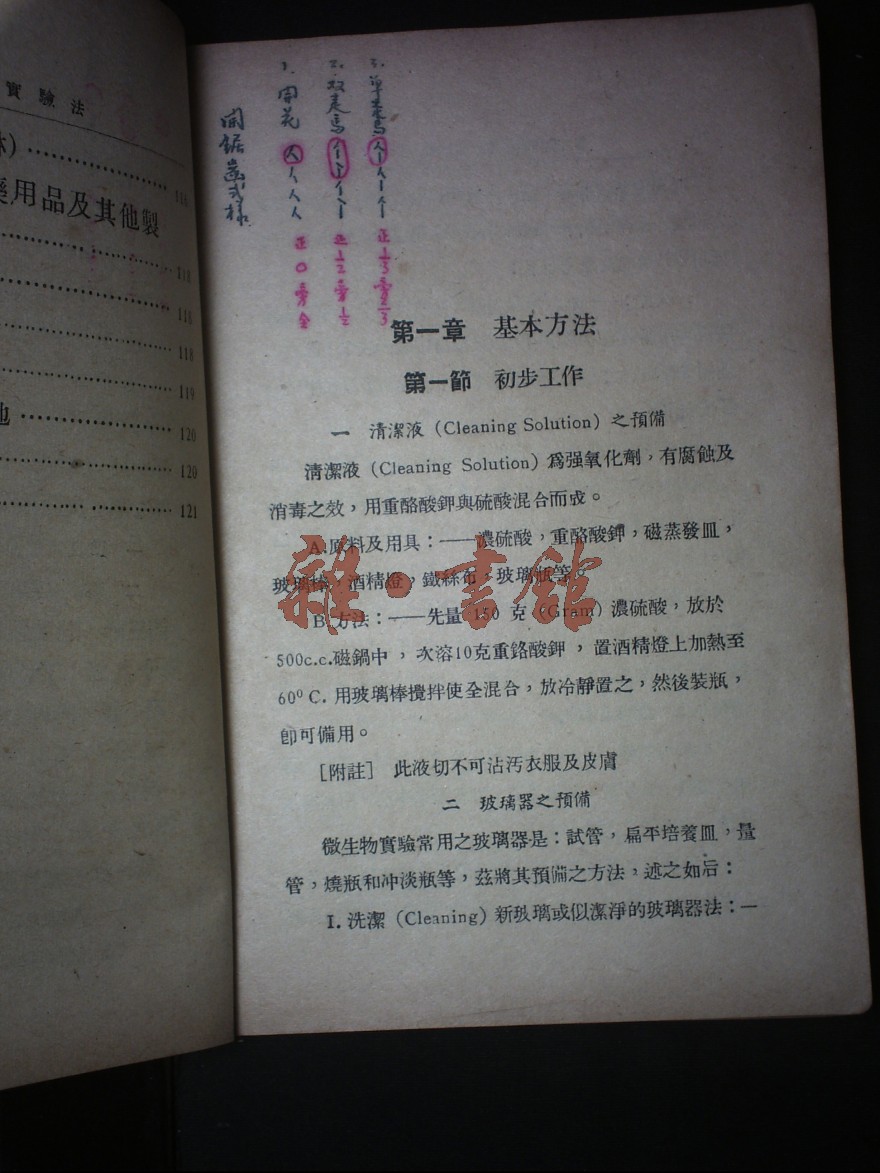 實驗法
林) 118
藥用品及其他製
118
116
118
119
地 120
120
121
開鋸齒式樣
1. 開花 人人人人 正0旁全
2. 双走馬 正1/2旁1/2
3. 單走馬 正1/3旁2/3
第一章 基本方法
第一節 初步工作
一 清潔液（Cleaning Solution）之預備
清潔液（Cleaning Solution）爲强氧化劑，有腐蝕及
消毒之效，用重酪酸鉀與硫酸混合而成。
A.原料及用具：——濃硫酸，重酪酸鉀，磁蒸發皿，
玻璃棒，酒精燈，鐵絲布，玻璃瓶等。
B.方法：——先量 150 克（Gram）濃硫酸，放於
500c.c.磁鍋中，次溶10克重鉻酸鉀，置酒精燈上加熱至
60⁰ C. 用玻璃棒攪拌使全混合，放冷靜置之，然後裝瓶，
卽可備用。
[附註] 此液切不可沾汚衣服及皮膚
二 玻璃器之預備
微生物實驗常用之玻璃器是：試管，扁平培養皿，量
管，燒瓶和冲淡瓶等，茲將其預備之方法，述之如后：
I. 洗潔（Cleaning）新玻璃或似潔淨的玻璃器法：—
雜·書館